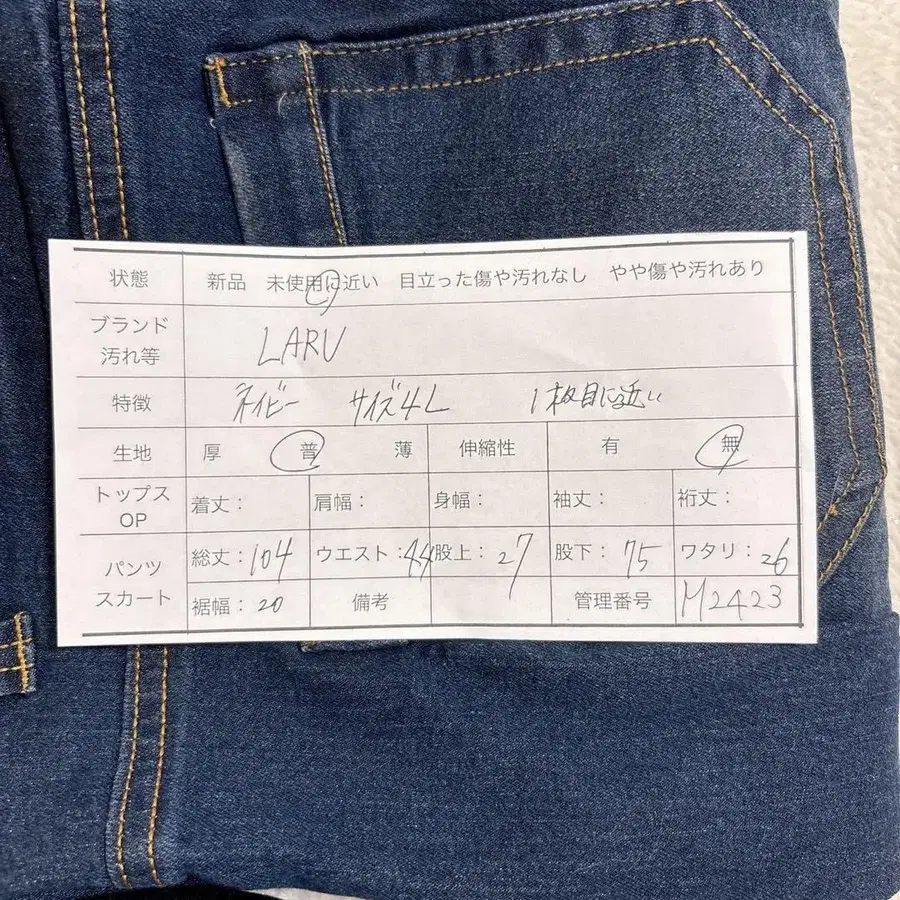 状態 新品 未使用に近い 目立った傷や汚れなし やや傷や汚れあり
ブランド
汚れ等 LARU
特徴 ネイビー サイズ4L 1枚目に近い
生地 厚 普 薄 伸縮性 有 無
トップス
OP 着丈: 肩幅: 身幅: 袖丈: 裄丈:
パンツ
スカート 総丈:104 ウエスト:44 股上:27 股下:75 ワタリ:26
裾幅:20 備考 管理番号 M2423